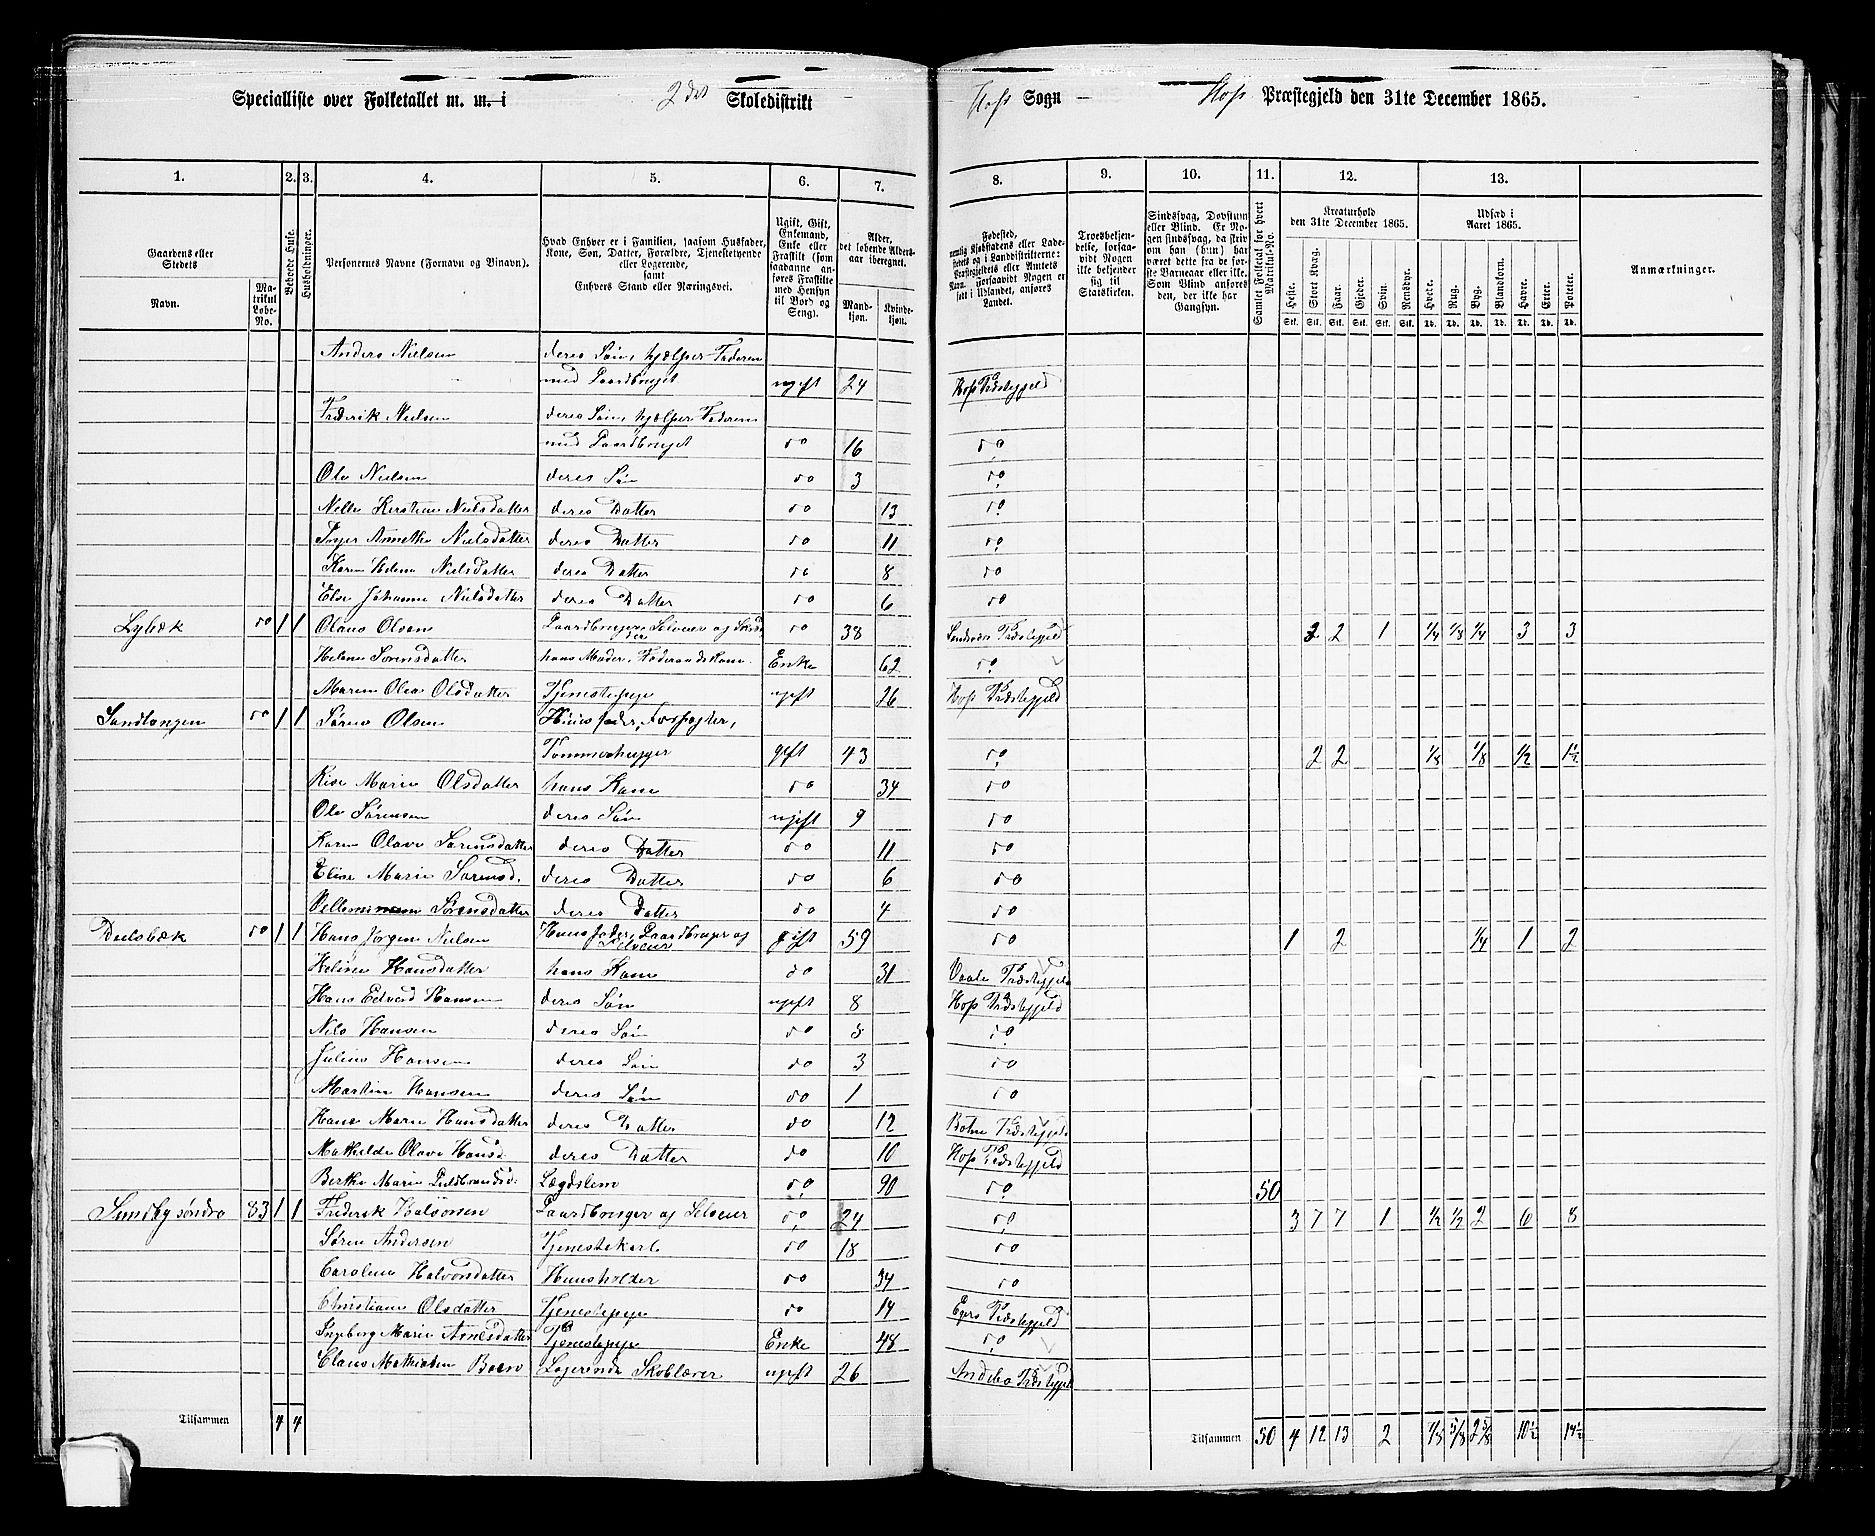 Specialliste over Folketallet m. m. i 2det Skoledistrikt Hofs Sogn Hofs Præstegjeld den 31te December 1865.
1. 2. 3. 4. 5. 6. 7. 8. 9. 10. 11. 12. 13.
Gaardens eller Stedets
Navn.
Matrikul Løbe-No.
Beboede Huse.
Husholdninger.
Personernes Navne (Fornavn og Tilnavn).
Hvad Enhver er i Familien, saasom Husfader, Kone, Søn, Datter, Forældre, Tjenestetyende eller Logerende,
samt
Enhvers Stand eller Næringsvei.
Ugift, Gift, Enkemand, Enke eller Fraskilt (som saadanne anføres Fraskilte med Hensyn til Bord og Seng).
Alder, det løbende Aldersaar iberegnet.
Mandkjøn.
Kvindekjøn.
Fødested,
Trosbekjendelse, forsaavidt Nogen ikke bekjender sig til Statskirken.
Sindssvag, Døvstum eller Blind. Er Nogen sindssvag, da skrives om han (hun) har været dette fra de første Barneaar eller ikke. Som Blind anføres den, der ikke har Gangsyn.
Samlet Folketal for hvert Matrikul-No.
Kreaturhold den 31te December 1865.
Heste. Stort Kvæg. Faar. Gjeder. Svin. Rensdyr.
Udsæd i Aaret 1865.
Hvete. Rug. Byg. Blandkorn. Havre. Erter. Poteter.
Anmærkninger.
Anders Nielsen deres Søn, hjælper Faderen
med Gaardbruget ugift 24 Hofs Præstegjeld
Frederik Nielsen deres Søn, hjælper Faderen
med Gaardbruget do 16 do
Ole Nielsen deres Søn do 3 do
Nelle Kirstine Nielsdatter deres Datter do 13 do
Inger Annethe Nielsdatter deres Datter do 11 do
Karen Helene Nielsdatter deres Datter do 8 do
Else Johanne Nielsdatter deres Datter do 6 do
Lybæk do 1 1 Olaus Olsen Gaardbruger Selveier og do 38 Sandsvær Præstegjeld 2 2 1 1/4 1/8 1/4 3 3
Helene Sørensdatter hans Moder, Føderaadskone Enke 62 do
Maren Olea Olsdatter Tjenestepige ugift 26 Hofs Præstegjeld
Sandtangen do 1 1 Søren Olsen Huusfader, Forpagter,
Tømmerhugger gift 43 do 2 2 1/8 1/8 1/2 1 1/2
Kise Marie Olsdatter hans Kone do 34 do
Ole Sørensen deres Søn ugift 9 do
Karen Olave Sørensdatter deres Datter do 11 do
Elise Marie Sørensd. deres Datter do 6 do
Sørensdatter deres Datter do 4 do
Dulsbæk do 1 1 Hans Jørgen Nielsen Huusfader, Gaardbruger og Selveier gift 59 do 1 2 1/4 1 2
Heline Hansdatter hans Kone do 31 Vaale Præstegjeld
Hans Edvard Hansen deres Søn ugift 8 Hofs Præstegjeld
Nils Hansen deres Søn do 5 do
Julius Hansen deres Søn do 3 do
Martin Hansen deres Søn do 1 do
Hane Marie Hansdatter deres Datter do 12 Botne Præstegjeld
Mathilde Olave Hansd. deres Datter do 10 Hofs Præstegjeld
Berthe Marie Lægdslem do 90 do 50
Sundby søndre 83 1 1 Frederik Halvorsen Gaardbruger og Selveier do 24 do 3 7 7 1 1/2 1/2 2 6 8
Søren Andersen Tjenestekarl do 18 do
Caroline Halvorsdatter Huusholder do 34 do
Christiane Olsdatter Tjenestepige do 14 Egers Præstegjeld
Ingborg Marie Arnesdatter Tjenestepige Enke 48 do
Claus Mathisen Boen Logerende Skolelærer ugift 26 Andebo Præstegjeld
Tilsammen 4 4 Tilsammen 50 4 12 13 2 7/8 5/8 2 5/8 10 1/2 14 1/2